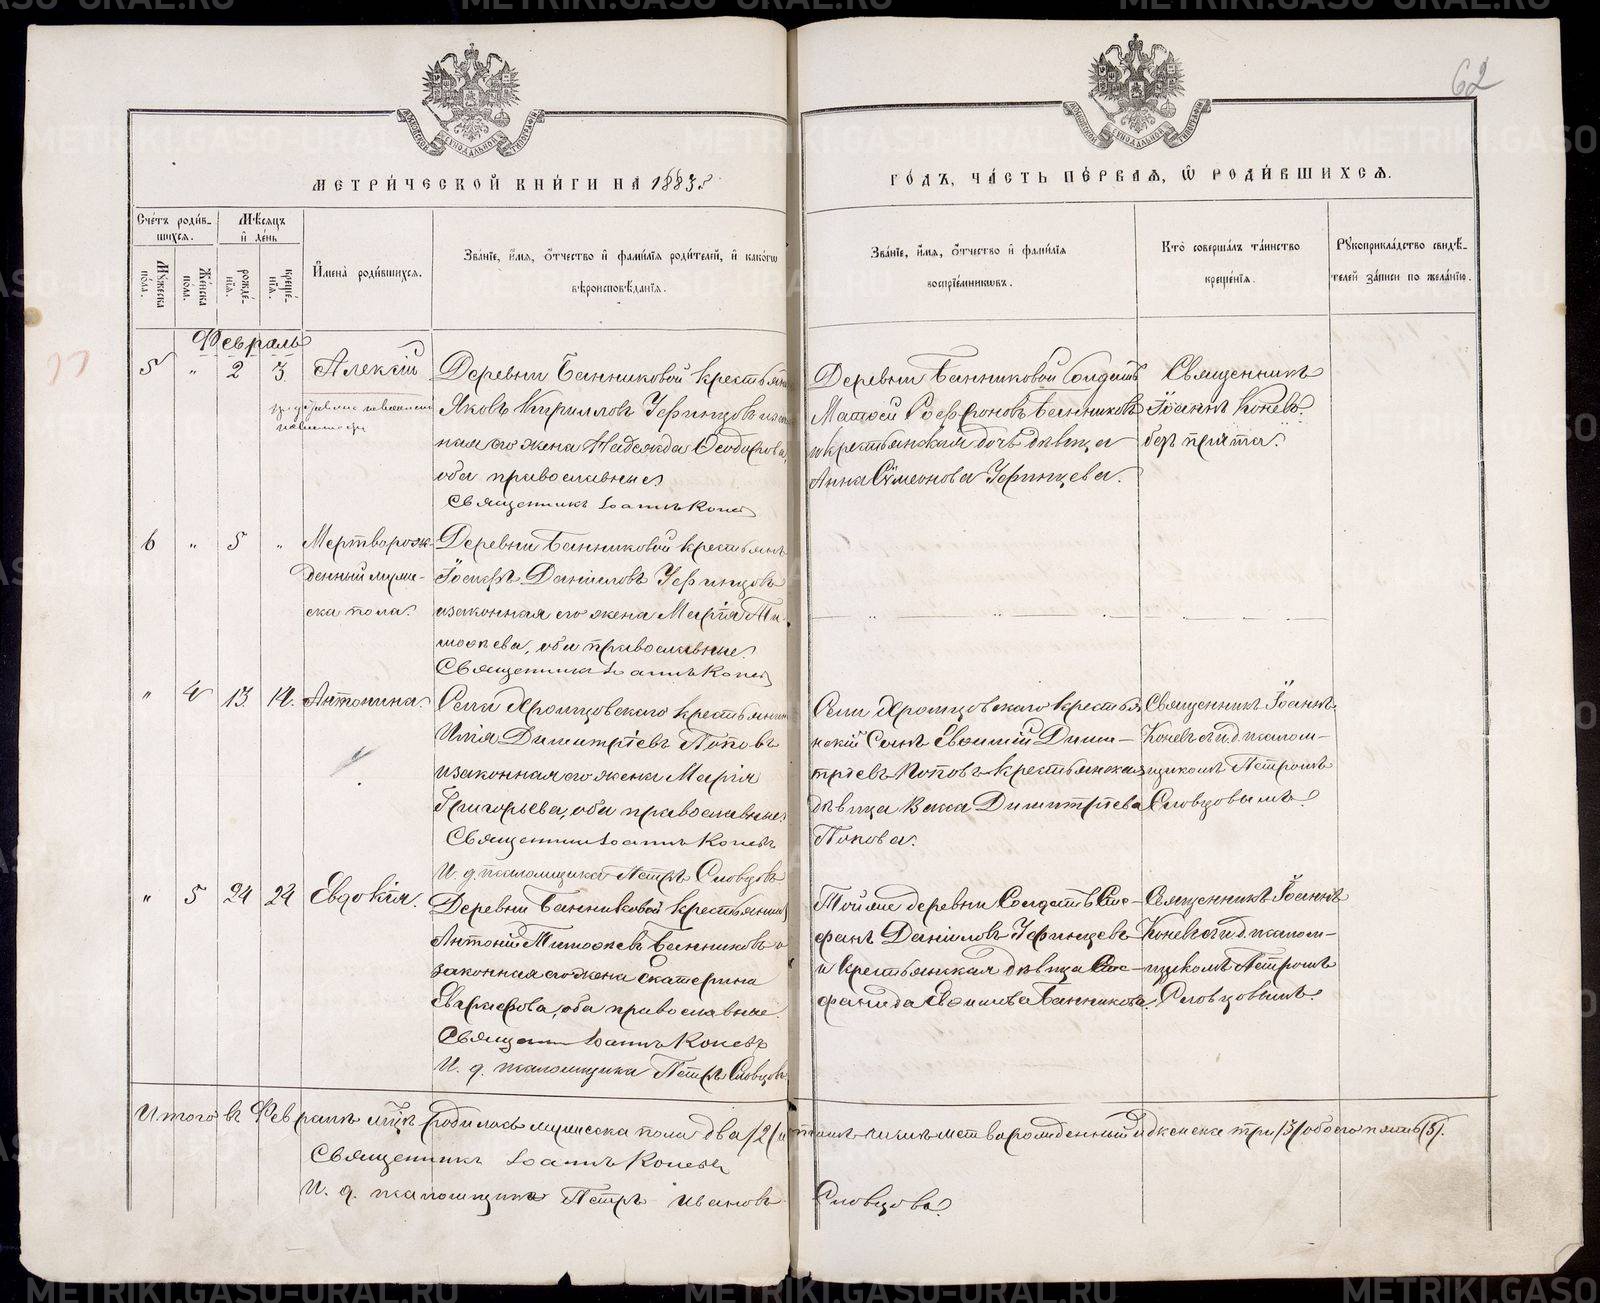 62
МЕТРИ́ЧЕСКОЙ КНИ́ГИ НА̀ 1883.
ГО́ДЪ, ЧА́СТЬ ПЕ́РВАЯ, Ѿ РОДИ́ВШИХСЯ.
Сче́тъ роди́в-
шихся.
Му́жеска по́ла.
Же́нска по́ла.
Мѣ́сяцъ
и҆ де́нь
рожде́-
нїя.
креще́-
нїя.
И҆мена̀ роди́вшихся.
Зва́нїе, и҆́мя, ѻ҆́тчество и҆ фами́лїя роди́телей, и҆ како́гѡ
вѣроисповѣ́данїя.
Зва́нїе, и҆́мя, ѻ҆́тчество и҆ фами́лїя
воспрїе́мникѡвъ.
Кто̀ соверша́лъ та́инство
креще́нїя.
Рꙋкоприкла́дство свидѣ́-
телей за́писи по жела́нїю.
Февраль
5 " 2 3. Алексій
Деревни Банниковой крестьянинъ
Яковъ Кирилловъ Уфинцовъ и закон
ная его жена Надежда Ѳеодорова,
оба православные
Священникъ Іоаннъ Коневъ
Деревни Банниковой солдатъ
Матѳей Софроновъ Банниковъ
и крестьянская дочь дѣвица
Анна Сѵмеонова Уфинцева.
Священникъ
Іоаннъ Коневъ
безъ причта.
6 " 5 " Мертворож-
денный муже-
ска пола.
Деревни Банниковой крестьянинъ
Іосифъ Даніиловъ Уфинцовъ
и законная его жена Марія Ти-
моѳеева, оба православные.
Священникъ Іоаннъ Коневъ
" 4 13 14. Антонина.
Села Яромцовского крестьянинъ
Илія Димитріевъ Поповъ
и законная его жена Марія
Григорьева, оба православные.
Священникъ Іоаннъ Коневъ
И. д. псаломщика Петръ Словцовъ
Села Яромцовского крестья
нскій сынъ Евѳимій Дими-
тріевъ Поповъ и крестьянская
дѣвица Васса Димитріева
Попова.
Священникъ Іоаннъ
Коневъ съ и. д. псалом-
щикомъ Петромъ
Словцовымъ.
" 5 24 24 Евдокія.
Деревни Банниковой крестьянинъ
Антоній Тимоѳеевъ Банниковъ и
законная его жена Екатерина
Евграфова, оба православные.
Священникъ Іоаннъ Коневъ
И. д. псаломщика Петръ Словцовъ
Той же деревни солдатъ Сте-
фанъ Даніиловъ Уфинцевъ
и крестьянская дѣвица Сте-
фанида Евѳимова Банникова.
Священникъ Іоаннъ
Коневъ съ и. д. псалом-
щикомъ Петромъ
Словцовымъ.
Итого въ Февралѣ мцѣ родилось мужеска пола два /2/ и въ томъ числѣ мертворожденный и женска три /3/ обоего пять (5).
Священникъ Іоаннъ Коневъ
И. д. псаломщика Петръ Ивановъ Словцовъ.
МОСКОВСКОЙ СѴНОДАЛЬНОЙ ТИПОГРАФІИ
МОСКОВСКОЙ СѴНОДАЛЬНОЙ ТИПОГРАФІИ
METRIKI.GASO-URAL.RU